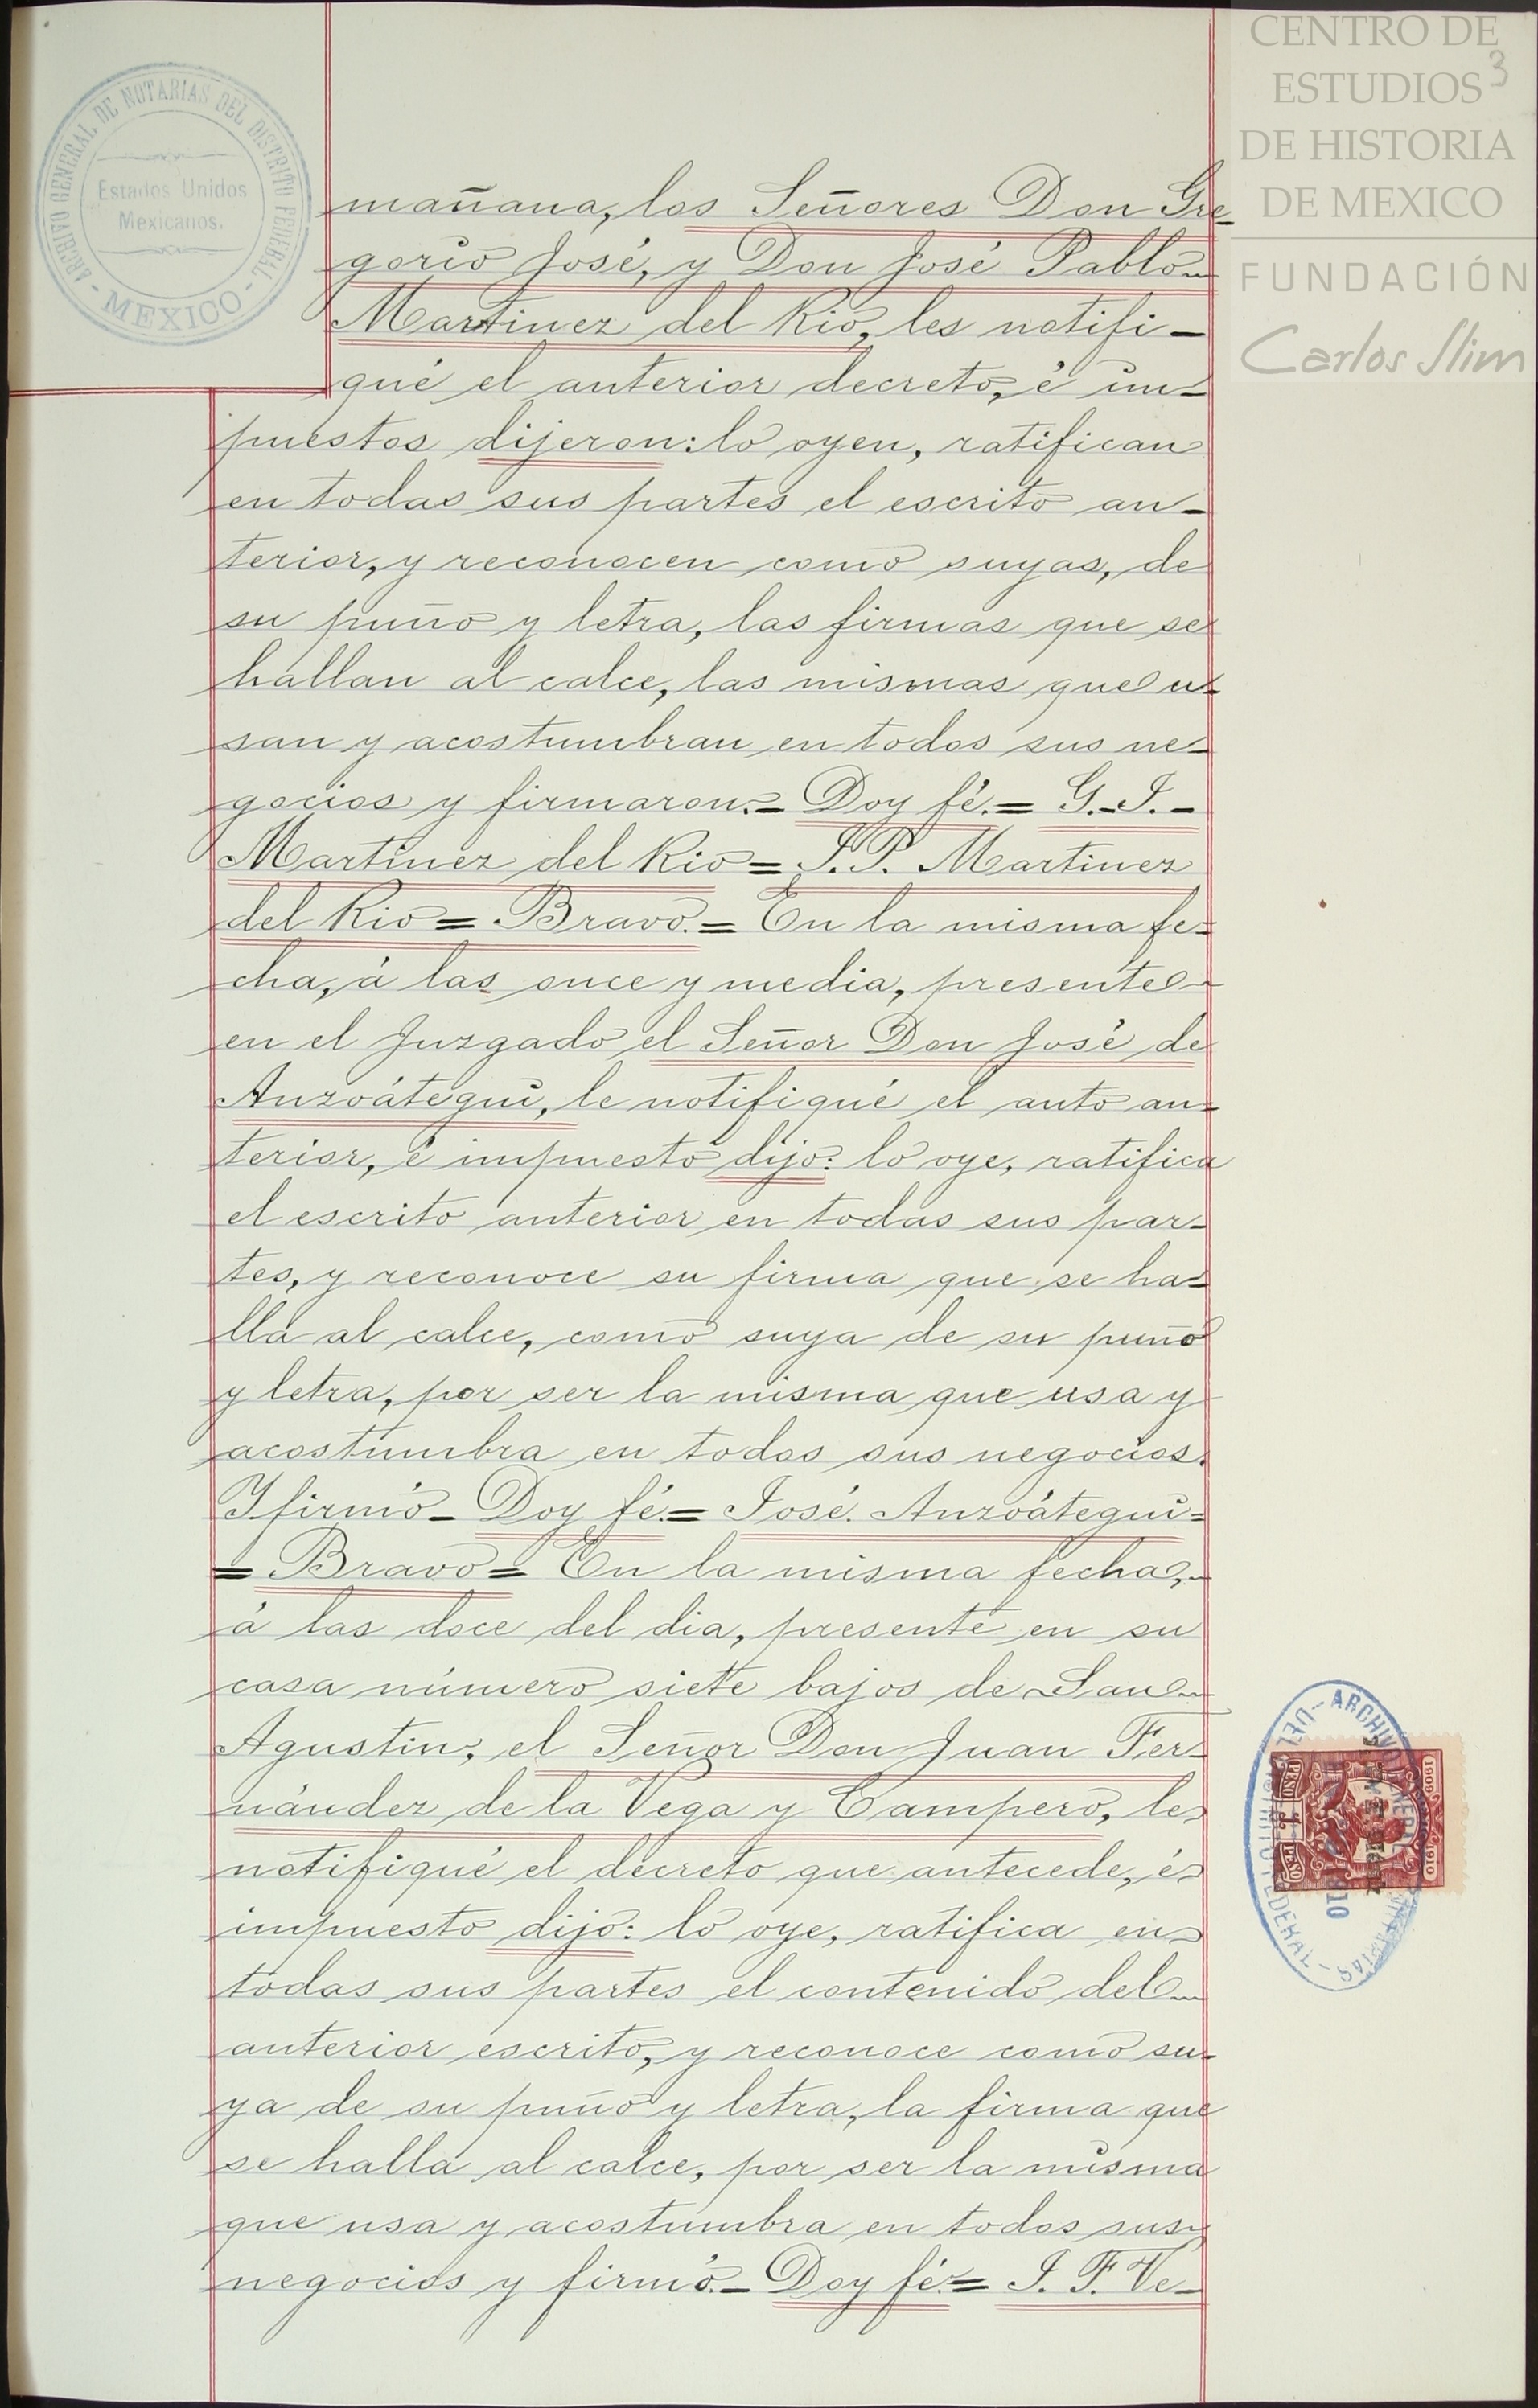 CENTRO DE
ESTUDIOS
3
DE HISTORIA
DE MEXICO
FUNDACIÓN
Carlos Slim
ARCHIVO GENERAL DE NOTARIAS DEL DISTRITO FEDERAL
Estados Unidos
Mexicanos.
- MEXICO -
mañana, los Señores Don Gre-
gorio José, y Don José Pablo
Martinez del Rio, les notifi-
qué el anterior decreto, é im-
puestos dijeron: lo oyen, ratifican
en todas sus partes el escrito an-
terior, y reconocen como suyas, de
su puño y letra, las firmas que se
hallan al calce, las mismas que u-
san y acostumbran en todos sus ne-
gocios y firmaron.- Doy fé.= G. J. -
Martinez del Rio = J. P. Martinez
del Rio = Bravo. = En la misma fe-
cha, á las once y media, presente
en el Juzgado el Señor Don José de
Anzoátegui, le notifiqué el auto an-
terior, é impuesto dijo: lo oye, ratifica
el escrito anterior en todas sus par-
tes, y reconoce su firma que se ha-
lla al calce, como suya de su puño
y letra, por ser la misma que usa y
acostumbra en todos sus negocios.
Y firmó - Doy fé. = José. Anzoátegui =
= Bravo = En la misma fecha,
á las doce del dia, presente en su
casa número siete bajos de San
Agustin, el Señor Don Juan Fer-
nández de la Vega y Campero, le
notifiqué el decreto que antecede, é
impuesto dijo: lo oye, ratifica en
todas sus partes el contenido del
anterior escrito, y reconoce como su-
ya de su puño y letra, la firma que
se halla al calce, por ser la misma
que usa y acostumbra en todos sus
negocios y firmó.- Doy fé. = J. F. Ve-
ARCHIVO GENERAL
DEL DISTRITO FEDERAL
1909 1910
PESO 1 PESO